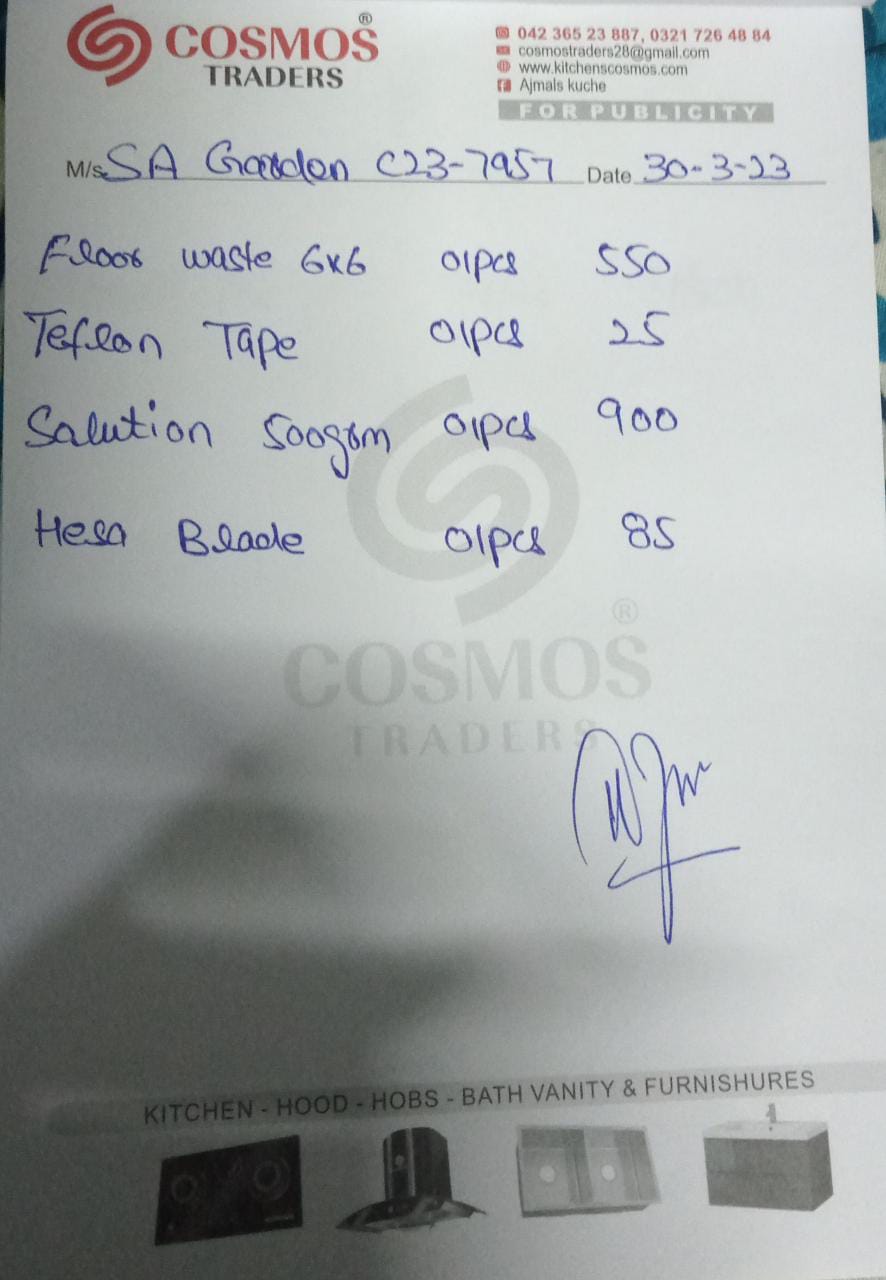 COSMOS®
TRADERS
042 365 23 887, 0321 726 48 84
cosmostraders28@gmail.com
www.kitchenscosmos.com
Ajmals kuche
FOR PUBLICITY
M/s. SA Garden C23-7957 Date 30-3-23
Floor waste 6x6 01pcs 550
Teflon Tape 01pcs 25
Salution 500grm 01pcs 900
Hesa Blade 01pcs 85
COSMOS®
TRADERS
KITCHEN - HOOD - HOBS - BATH VANITY & FURNISHURES